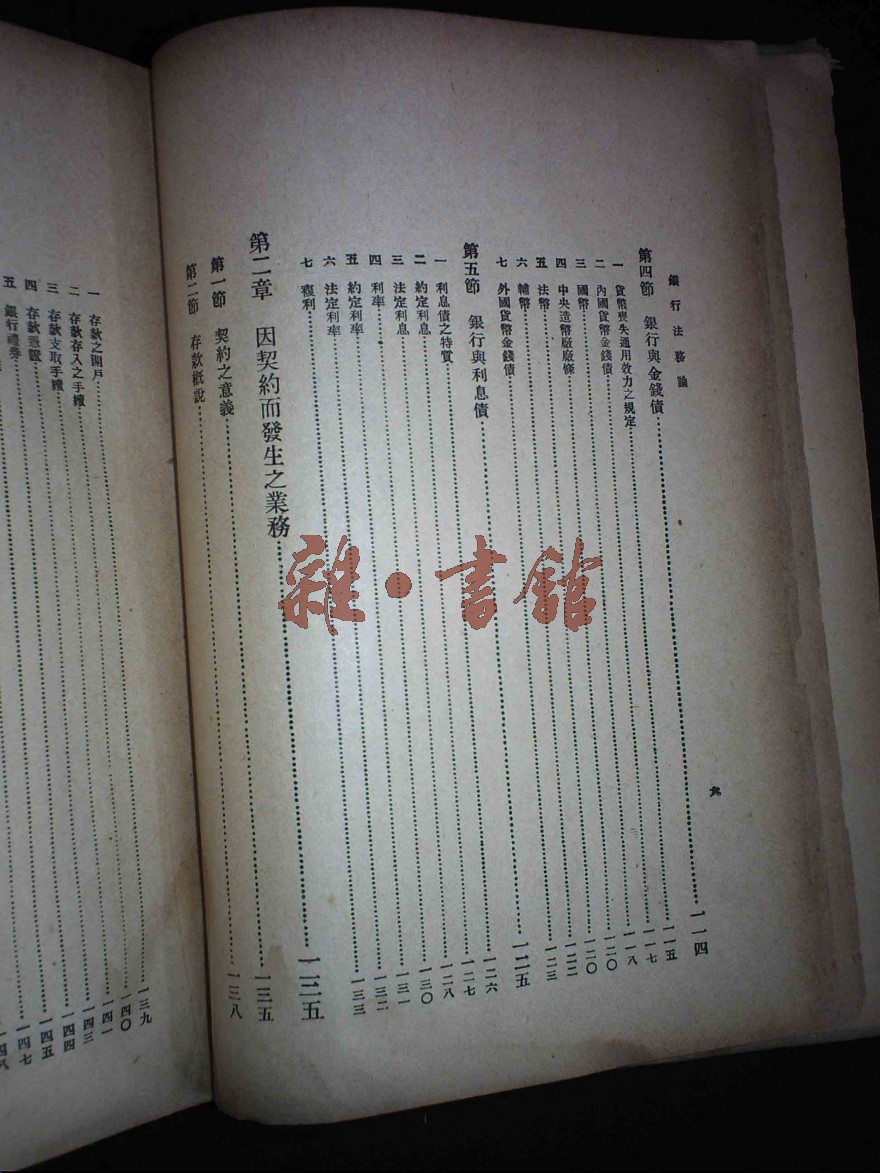 銀行法務論
六
第四節 銀行與金錢債……一一四
一 貨幣喪失通用效力之規定……一一五
二 內國貨幣金錢債……一一七
三 國幣……一一八
四 中央造幣廠廠條……一二〇
五 法幣……一二〇
六 輔幣……一二二
七 外國貨幣金錢債……一二三
第五節 銀行與利息債……一二五
一 利息債之特質……一二六
二 約定利息……一二七
三 法定利息……一二八
四 利率……一三〇
五 約定利率……一三一
六 法定利率……一三二
七 複利……一三三
第二章 因契約而發生之業務……一三五
第一節 契約之意義……一三五
第二節 存款概說……一三八
一 存款之開戶……一三九
二 存款存入之手續……一四〇
三 存款支取手續……一四一
四 存款憑證……一四三
五 銀行禮券……一四四
一四五
一四七
一四八
雜·書館